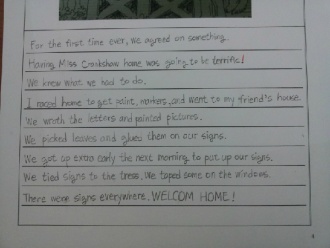 For the first time ever, we agreed on something.
Having Miss Crabshaw home was going to be terrific!
We knew what we had to do.
I raced home to get paint, markers, and went to my friend's house.
We worth the letters and painted pictures.
We picked leaves and glued them on our signs.
We got up extra early the next morning to put up our signs.
We tied signs to the tress. We taped some on the windows.
There were signs everywhere. WELCOM HOME!